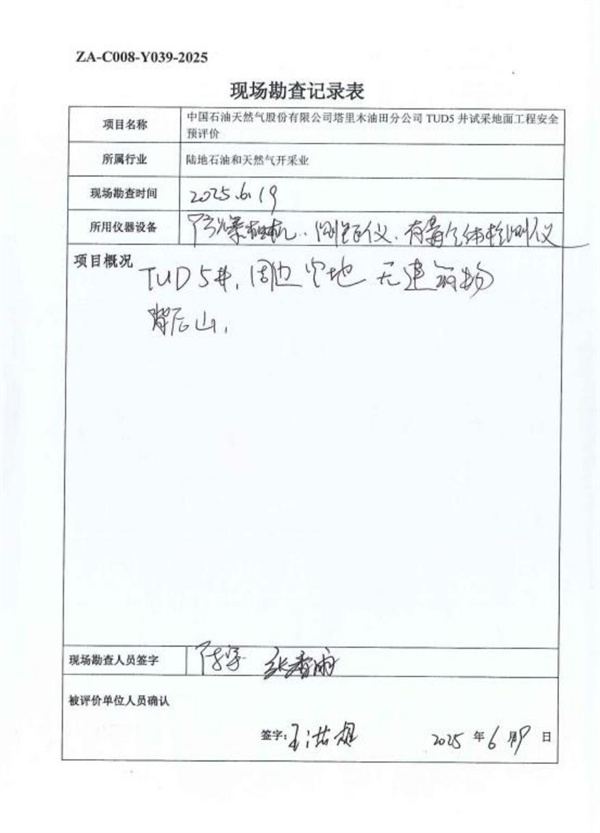 ZA-C008-Y039-2025
现场勘查记录表
项目名称
中国石油天然气股份有限公司塔里木油田分公司 TUD5 井试采地面工程安全
预评价
所属行业
陆地石油和天然气开采业
现场勘查时间
2025.6.19
所用仪器设备
防爆相机、测距仪、有毒气体检测仪
项目概况
TUD5井,周边空地 无建筑物
背后山,
现场勘查人员签字
张春雨
被评价单位人员确认
签字:
2025 年 6 月 19 日